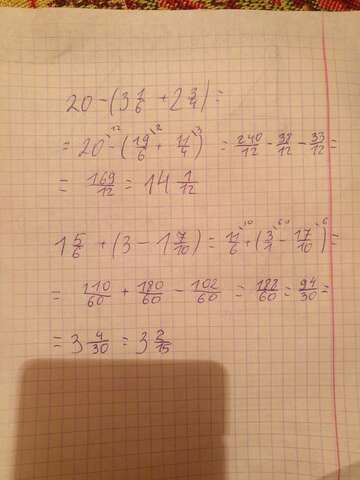 20 - (3 1/6 + 2 3/4) =
= 20^12 - (19/6^2 + 11/4^3) = 240/12 - 38/12 - 33/12 =
= 169/12 = 14 1/12
1 5/6 + (3 - 1 7/10) = 11/6^10 + (3/1^60 - 17/10^6) =
= 110/60 + 180/60 - 102/60 = 182/60 = 94/30 =
= 3 4/30 = 3 2/15